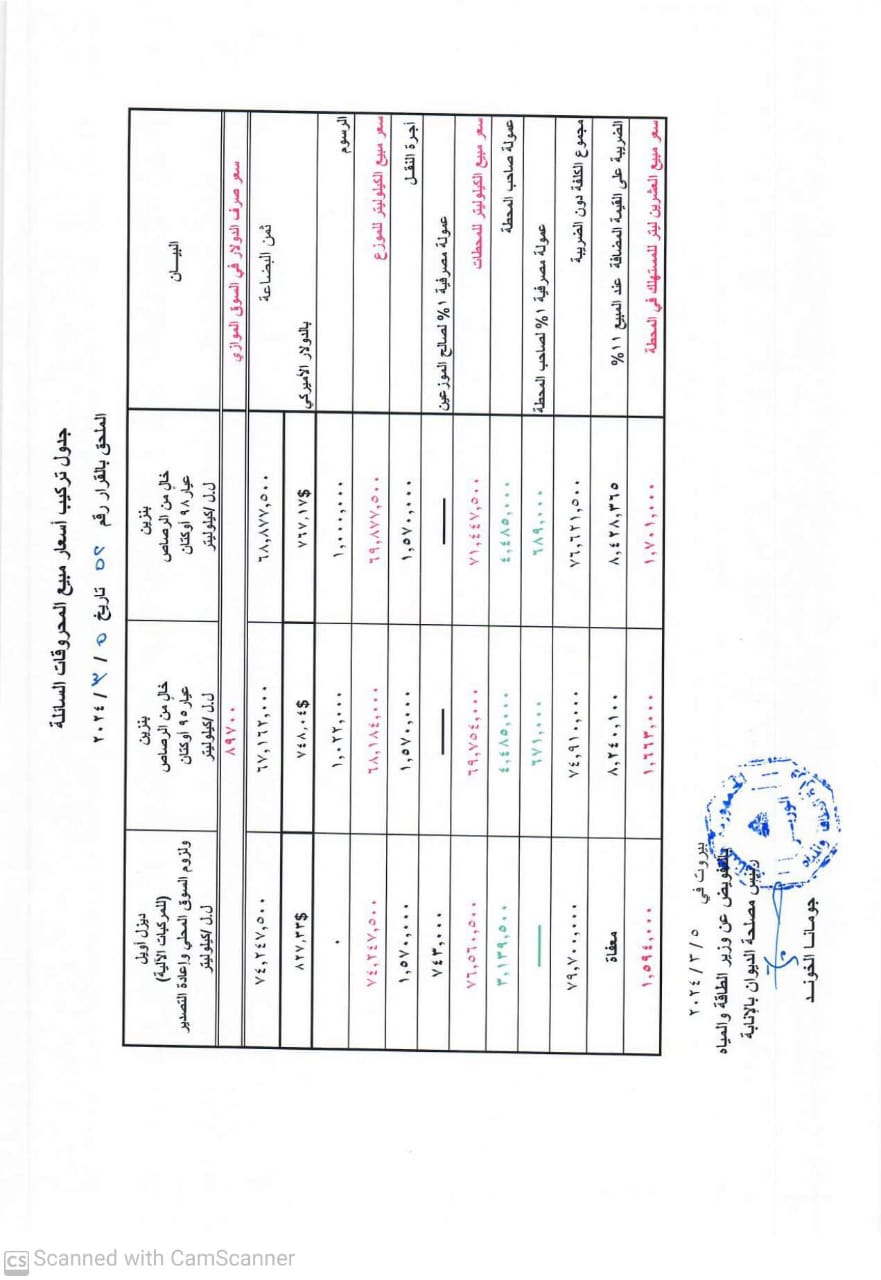 جدول تركيب أسعار مبيع المحروقات السائلة
الملحق بالقرار رقم ٥٢ تاريخ ٥ / ٣ / ٢٠٢٤
البيـــان
بنزين
خالٍ من الرصاص
عيار ٩٨ أوكتان
ل.ل /كيلوليتر
بنزين
خالٍ من الرصاص
عيار ٩٥ أوكتان
ل.ل /كيلوليتر
ديزل أويل
(للمركبات الآلية)
ولزوم السوق المحلي وإعادة التصدير
ل.ل /كيلوليتر
سعر صرف الدولار في السوق الموازي ٨٩٧٠٠
ثمن البضاعة ٦٨,٨٧٧,٥٠٠ ٦٧,١٦٢,٠٠٠ ٧٤,٢٤٧,٥٠٠
بالدولار الأميركي ٧٦٧,١٧$ ٧٤٨,٠٤$ ٨٢٧,٣٣$
الرسوم ١,٠٠٠,٠٠٠ ١,٠٢٢,٠٠٠ ٠
سعر مبيع الكيلوليتر للموزع ٦٩,٨٧٧,٥٠٠ ٦٨,١٨٤,٠٠٠ ٧٤,٢٤٧,٥٠٠
أجرة النقـل ١,٥٧٠,٠٠٠ ١,٥٧٠,٠٠٠ ١,٥٧٠,٠٠٠
عمولة مصرفية ١% لصالح الموزعين — — ٧٤٣,٠٠٠
سعر مبيع الكيلوليتر للمحطات ٧١,٤٤٧,٥٠٠ ٦٩,٧٥٤,٠٠٠ ٧٦,٥٦٠,٥٠٠
عمولة صاحب المحطة ٤,٤٨٥,٠٠٠ ٤,٤٨٥,٠٠٠ ٣,١٣٩,٥٠٠
عمولة مصرفية ١% لصاحب المحطة ٦٨٩,٠٠٠ ٦٧١,٠٠٠ —
مجموع الكلفة دون الضريبة ٧٦,٦٢١,٥٠٠ ٧٤,٩١٠,٠٠٠ ٧٩,٧٠٠,٠٠٠
الضريبة على القيمة المضافة عند المبيع ١١% ٨,٤٢٨,٣٦٥ ٨,٢٤٠,١٠٠ معفاة
سعر مبيع العشرين ليتر للمستهلك في المحطة ١,٧٠١,٠٠٠ ١,٦٦٣,٠٠٠ ١,٥٩٤,٠٠٠
بيروت في ٥ / ٣ / ٢٠٢٤
بالتفويض عن وزير الطاقة والمياه
رئيس مصلحة الديوان بالإنابة
جومانـا الخونـد
CS Scanned with CamScanner